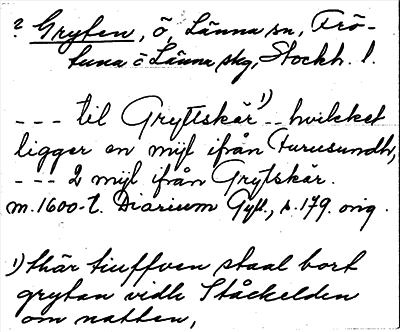 ? Gryten, ö, Länna sn, Frö-
tuna o Länna skg, Stockh. l.
--- til Grytskär¹) -- hvilcket
ligger en mijl ifrån Furusundh,
--- 2 mijl ifrån Grytskär.
m. 1600-t. Diarium Gyll., s. 179. orig.
¹) thär tiuffven staal bort
grytan vidh Ståckelden
om natten,